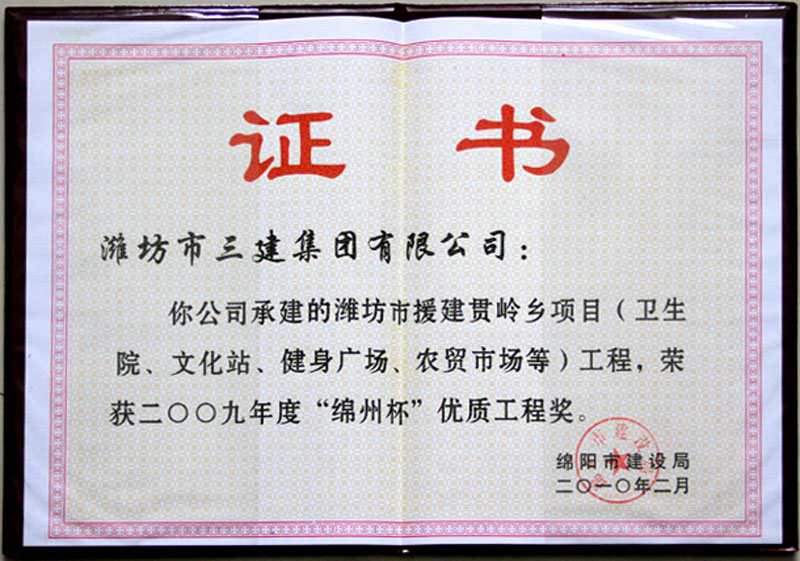 证书
潍坊市三建集团有限公司：
你公司承建的潍坊市援建贯岭乡项目（卫生
院、文化站、健身广场、农贸市场等）工程，荣
获二〇〇九年度“绵州杯”优质工程奖。
绵阳市建设局
二〇一〇年二月